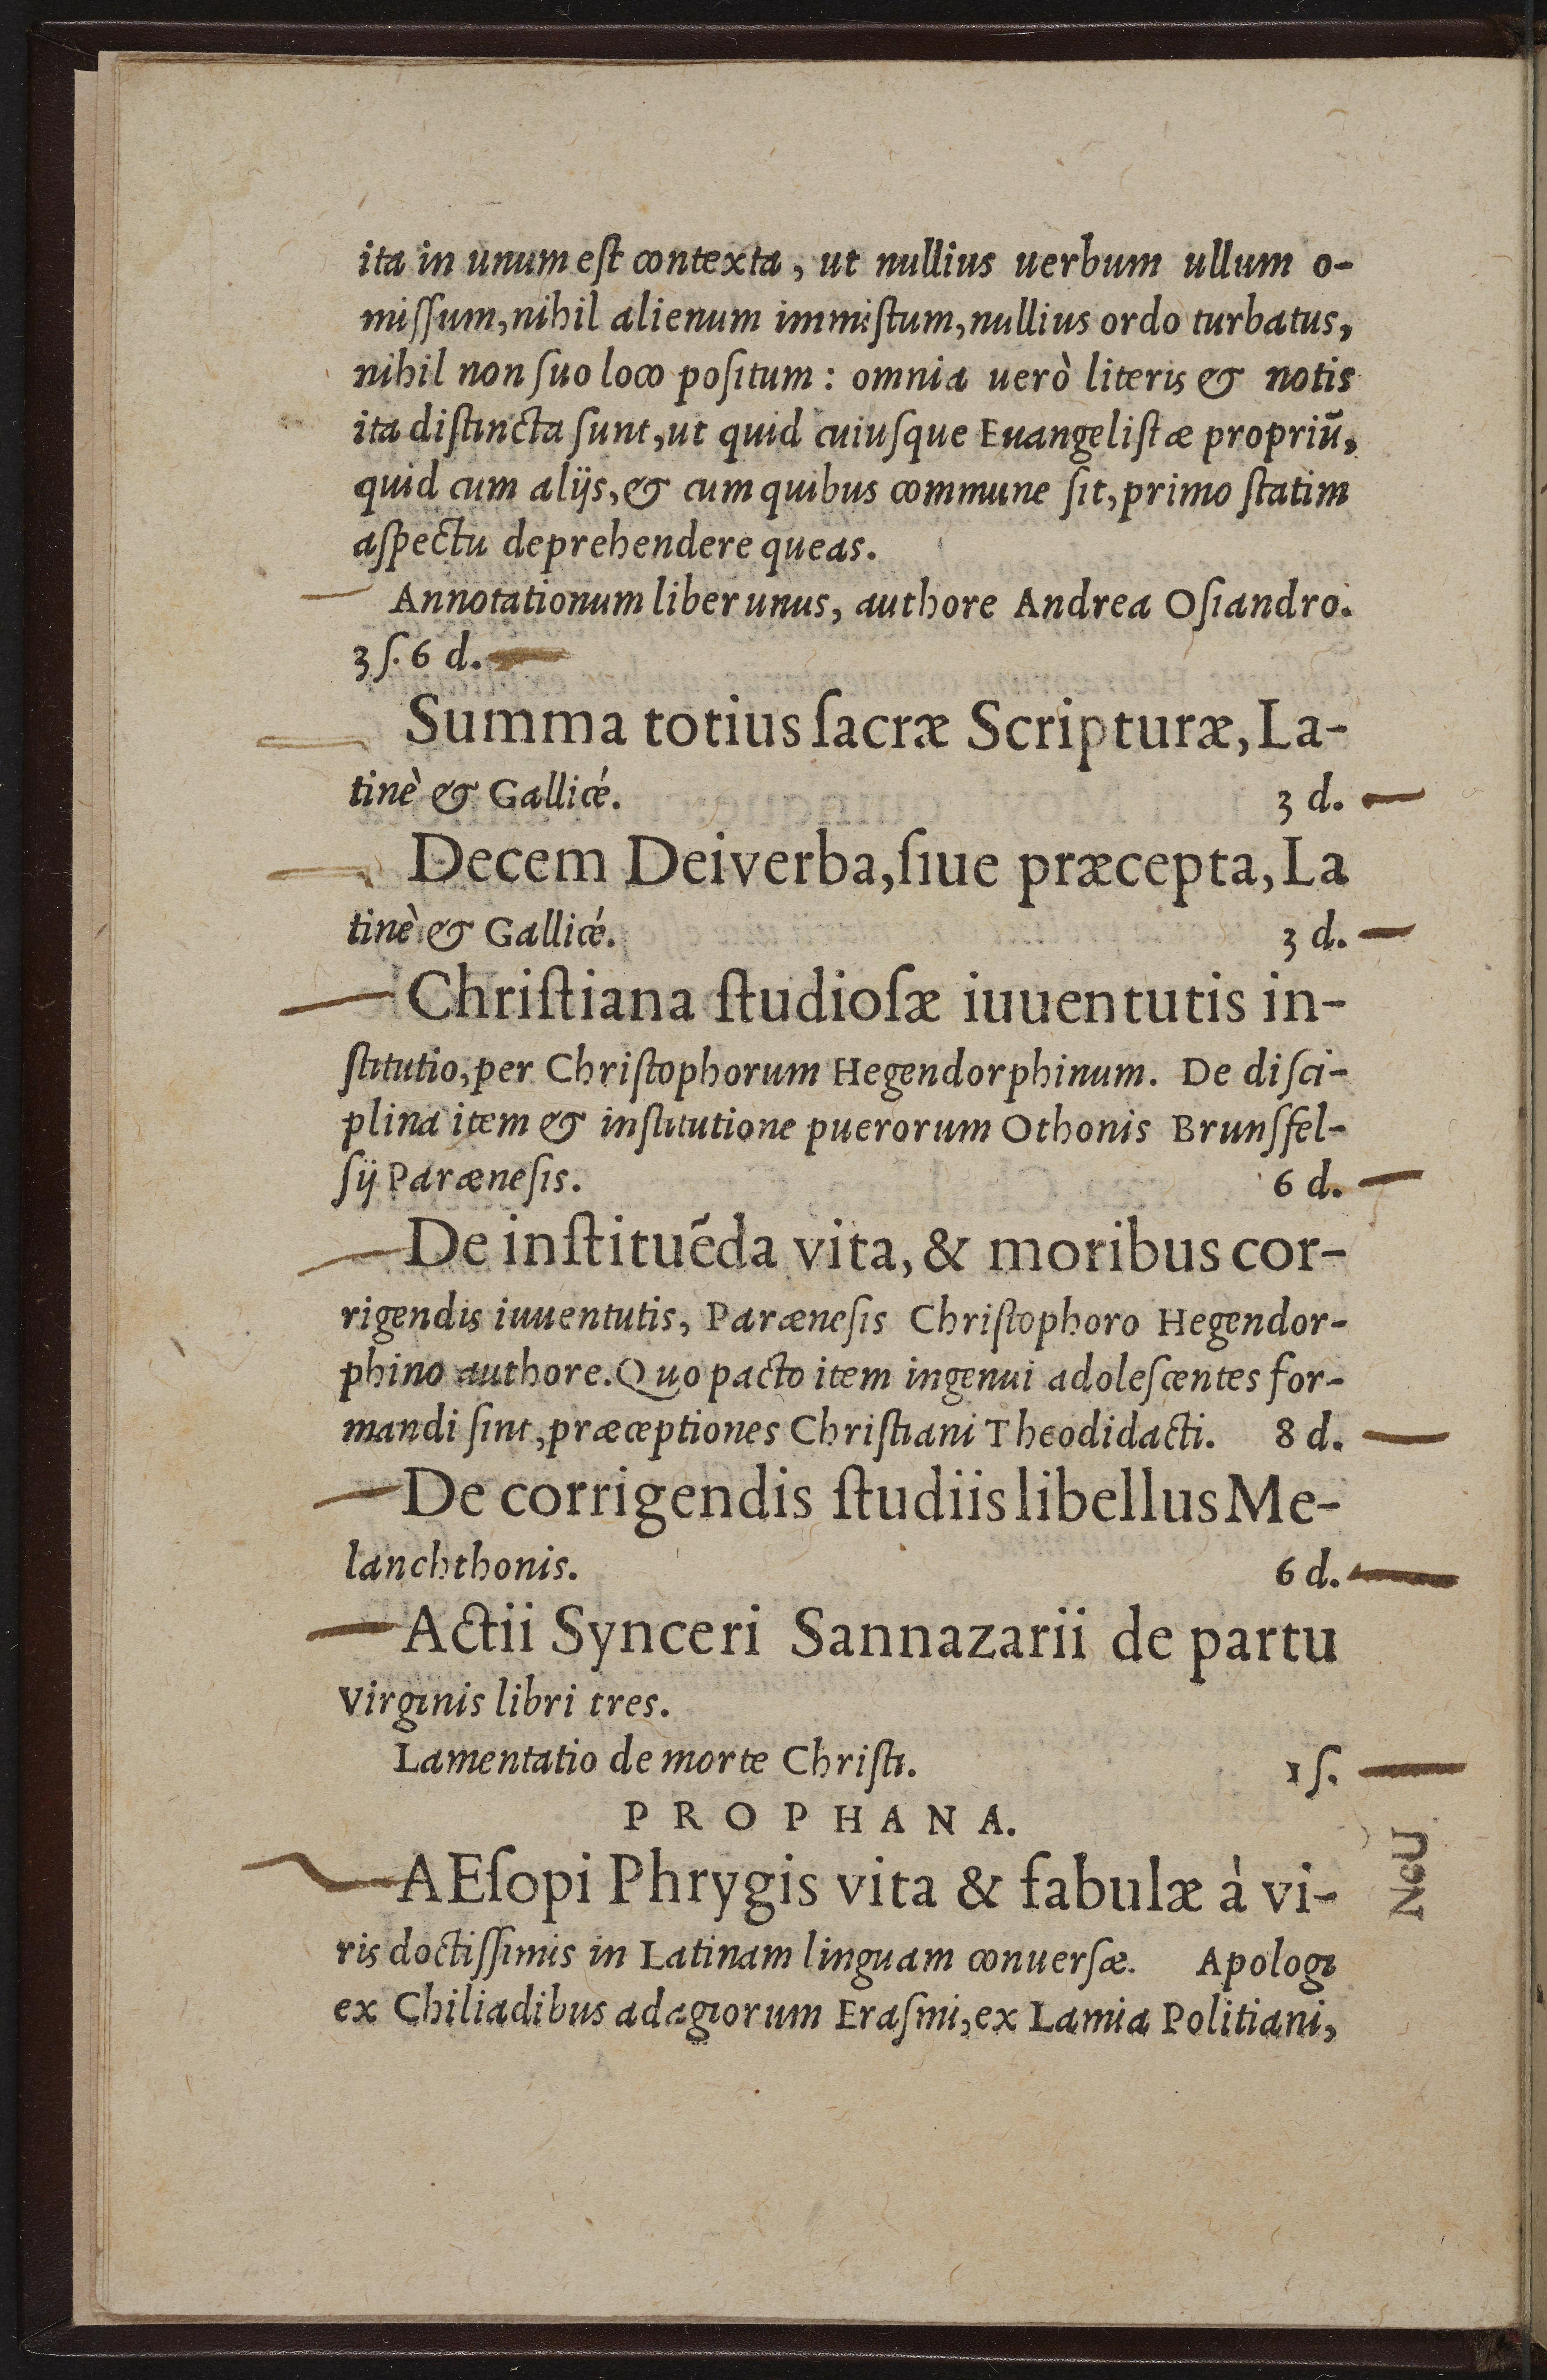 ita in unum eſt contexta, ut nullius uerbum ullum o-
miſſum, nihil alienum immiſtum, nullius ordo turbatus,
nihil non ſuo loco poſitum : omnia uerò literis & notis
ita diſtincta ſunt, ut quid cuiuſque Euangeliſtæ propriũ,
quid cum alijs, & cum quibus commune ſit, primo ſtatim
aſpectu deprehendere queas.
Annotationum liber unus, authore Andrea Oſiandro.
3 ſ. 6 d.
Summa totius ſacræ Scripturæ, La-
tinè & Gallicé. 3 d.
Decem Dei verba, ſiue præcepta, La
tinè & Gallicé. 3 d.
Chriſtiana ſtudioſæ iuuentutis in-
ſtitutio, per Chriſtophorum Hegendorphinum. De diſci-
plina item & inſtitutione puerorum Othonis Brunſfel-
ſij Paræneſis. 6 d.
De inſtituẽda vita, & moribus cor-
rigendis iuuentutis, Paræneſis Chriſtophoro Hegendor-
phino authore. Quo pacto item ingenui adoleſcentes for-
mandi ſint, præceptiones Chriſtiani Theodidacti. 8 d.
De corrigendis ſtudiis libellus Me-
lanchthonis. 6 d.
Actii Synceri Sannazarii de partu
Virginis libri tres.
Lamentatio de morte Chriſti. 1 ſ.
PROPHANA.
AEſopi Phrygis vita & fabulæ à vi-
ris doctiſſimis in Latinam linguam conuerſæ. Apologi
ex Chiliadibus adagiorum Eraſmi, ex Lamia Politiani,
NcU